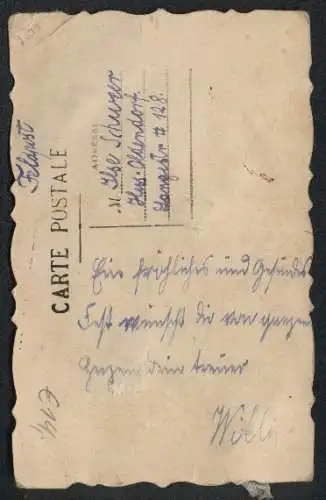 Feldpost
CARTE POSTALE
ADRESSE
Ilse Scheuer
Hess.-Oldendorf
Langestr # 128.
Ein fröhliches und Gesundes
Fest wünscht dir von ganzen
Herzen dein treuer
Willi